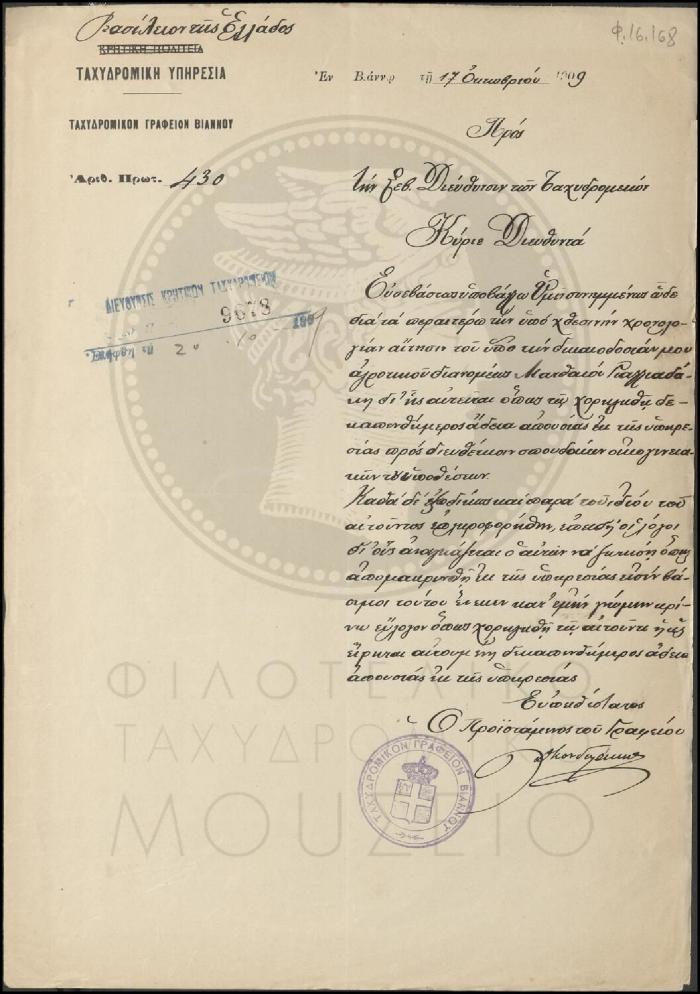 Βασίλειον τῆς Ἑλλάδος
ΚΡΗΤΙΚΗ ΠΟΛΙΤΕΙΑ
ΤΑΧΥΔΡΟΜΙΚΗ ΥΠΗΡΕΣΙΑ
ΤΑΧΥΔΡΟΜΙΚΟΝ ΓΡΑΦΕΙΟΝ ΒΙΑΝΝΟΥ
Ἀριθ. Πρωτ. 430
Φ.16.168
Ἐν Βιάννῳ τῇ 17 Ὀκτωβρίου 1909
Πρός
τὴν Σεβ. Διεύθυνσιν τῶν Ταχυδρομείων
Κύριε Διευθυντά
ΔΙΕΥΘΥΝΣΙΣ ΚΡΗΤΙΚΩΝ ΤΑΧΥΔΡΟΜΕΙΩΝ
9678
Εὐσεβάστως ὑποβάλλω Ὑμῖν συνημμένως ὧδε
διὰ τὰ περαιτέρω τὴν ὑπὸ χθεσινὴν χρονολο
γίαν αἴτησιν τοῦ ὑπὸ τὴν δικαιοδοσίαν μου
ἀγροτικοῦ διανομέως Ματθαίου
δι' ἧς αἰτεῖται ὅπως τῷ χορηγηθῇ δε
καπενθήμερος ἄδεια ἀπουσίας ἐκ τῆς ὑπηρε
σίας πρὸς διευθέτησιν σπουδαίων οἰκογενεια
κῶν του ὑποθέσεων.
Καθὰ δὲ καὶ παρὰ τοῦ ἰδίου τοῦ
αἰτοῦντος ἐπληροφορήθην, ἐπειδὴ οἱ λόγοι
δι' οὓς ἀναγκάζεται ὁ αἰτῶν νὰ ζητήσῃ ὅπως
ἀπομακρυνθῇ ἐκ τῆς ὑπηρεσίας εἰσὶν βά
σιμοι τούτου ἕνεκεν κατ' ἐμὴν γνώμην κρί
νω εὔλογον ὅπως χορηγηθῇ τῷ αἰτοῦντι ἡ ὡς
εἴρηται αἰτουμένη δεκαπενθήμερος ἄδεια
ἀπουσίας ἐκ τῆς ὑπηρεσίας
Εὐπειθέστατος
Ὁ Προϊστάμενος τοῦ Γραφείου
ΤΑΧΥΔΡΟΜΙΚΟΝ ΓΡΑΦΕΙΟΝ ΒΙΑΝΝΟΥ
ΦΙΛΟΤΕΛΙΚΟ
ΤΑΧΥΔΡΟΜΙΚΟ
ΜΟΥΣΕΙΟ